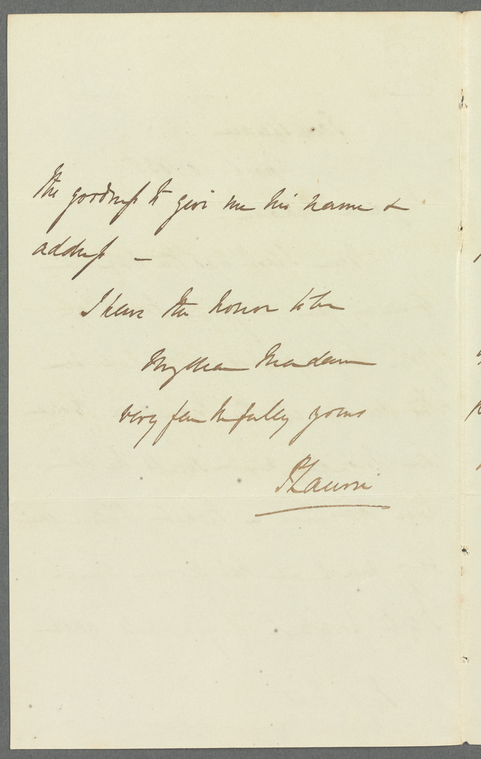 the goodness to give me his name &
address —
I have the honor to be
My dear Madam
very faithfully yours